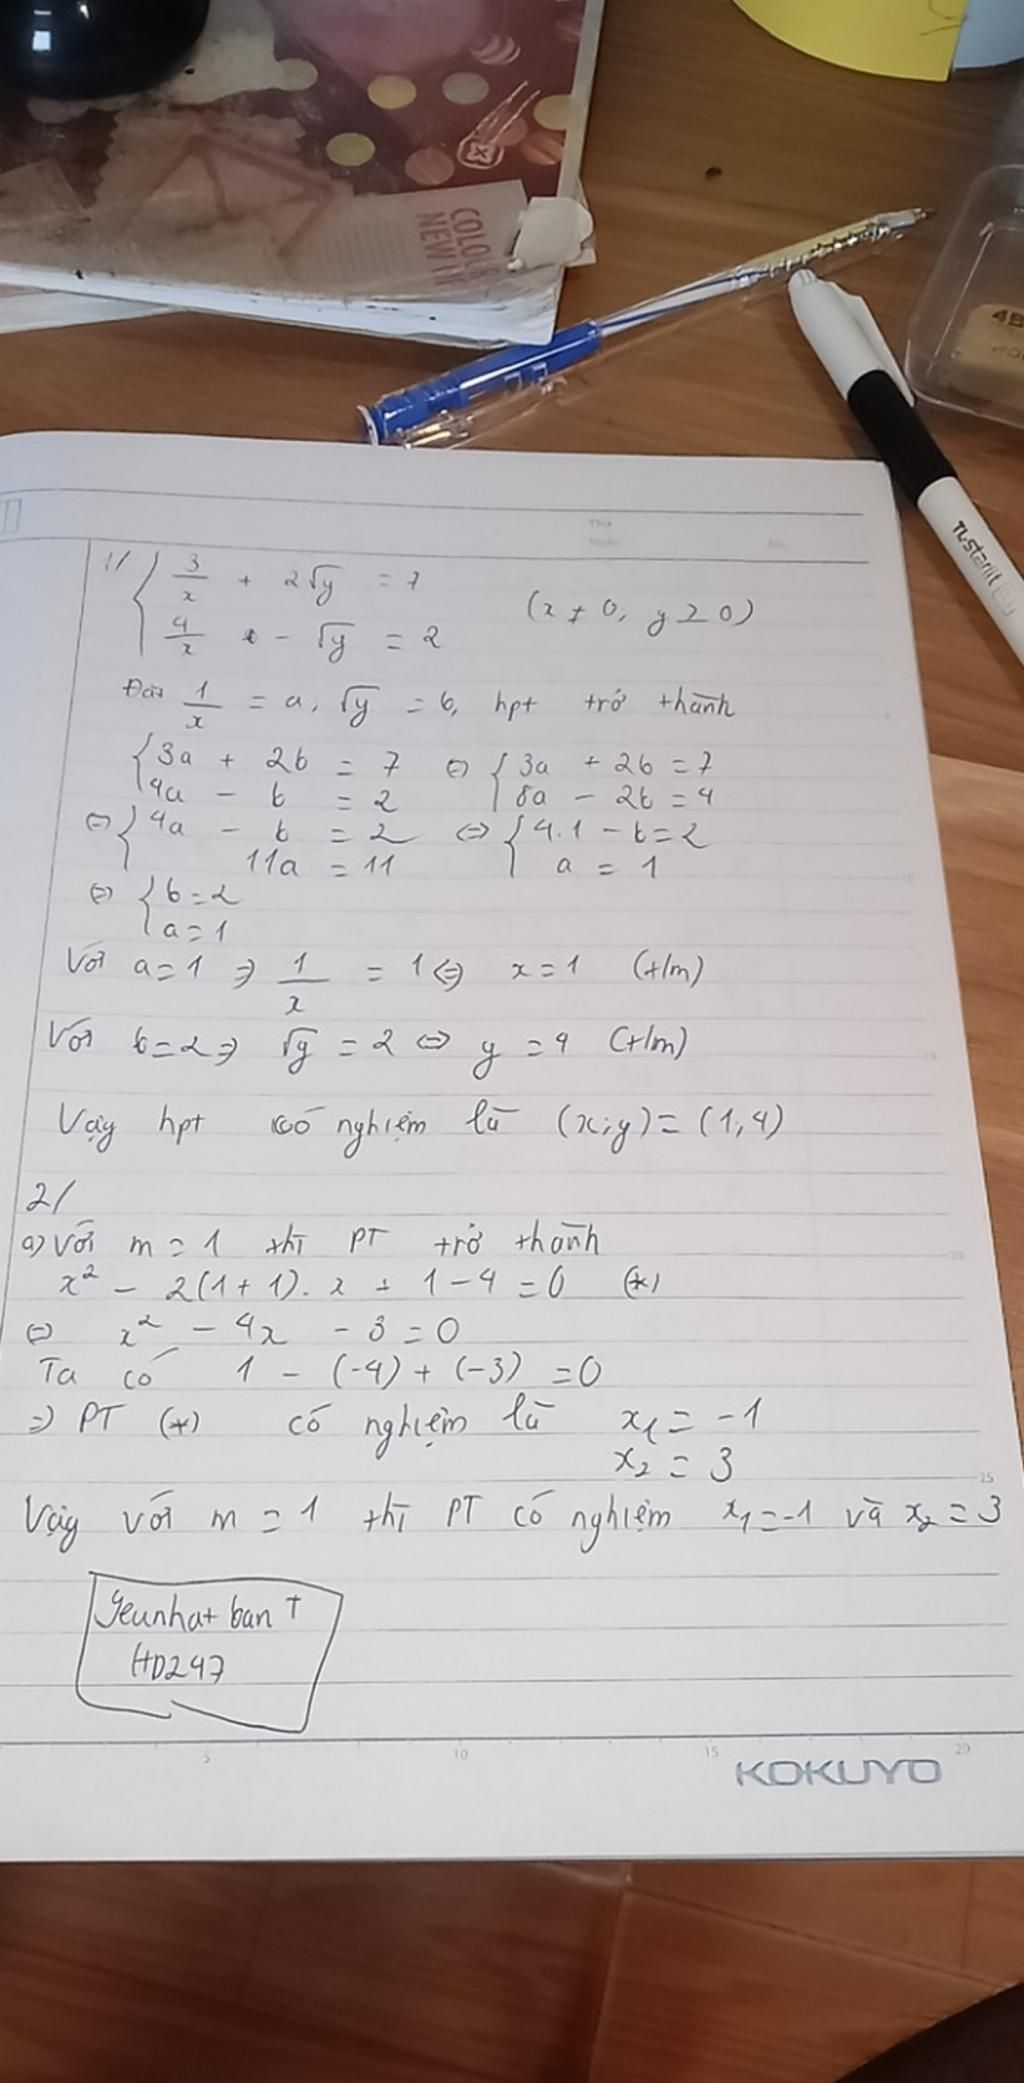 COLO
NEW
4B
TI-Starlit
1/ { 3/x + 2√y = 7
4/x - √y = 2 (x ≠ 0, y ≥ 0)
Đặt 1/x = a, √y = b, hpt trở thành
{ 3a + 2b = 7 ⇔ { 3a + 2b = 7
4a - b = 2 8a - 2b = 4
⇔ { 4a - b = 2 ⇔ { 4.1 - b = 2
11a = 11 a = 1
⇔ { b = 2
a = 1
Với a = 1 ⇒ 1/x = 1 ⇔ x = 1 (t/m)
Với b = 2 ⇒ √y = 2 ⇔ y = 4 (t/m)
Vậy hpt có nghiệm là (x;y) = (1,4)
2/
a) Với m = 1 thì PT trở thành
x² - 2(1+1).x + 1 - 4 = 0 (*)
⇔ x² - 4x - 3 = 0
Ta có 1 - (-4) + (-3) = 0
⇒ PT (*) có nghiệm là x₁ = -1
x₂ = 3
Vậy với m = 1 thì PT có nghiệm x₁ = -1 và x₂ = 3
Yeunhat ban T
HD247
5 10 15 20
KOKUYO